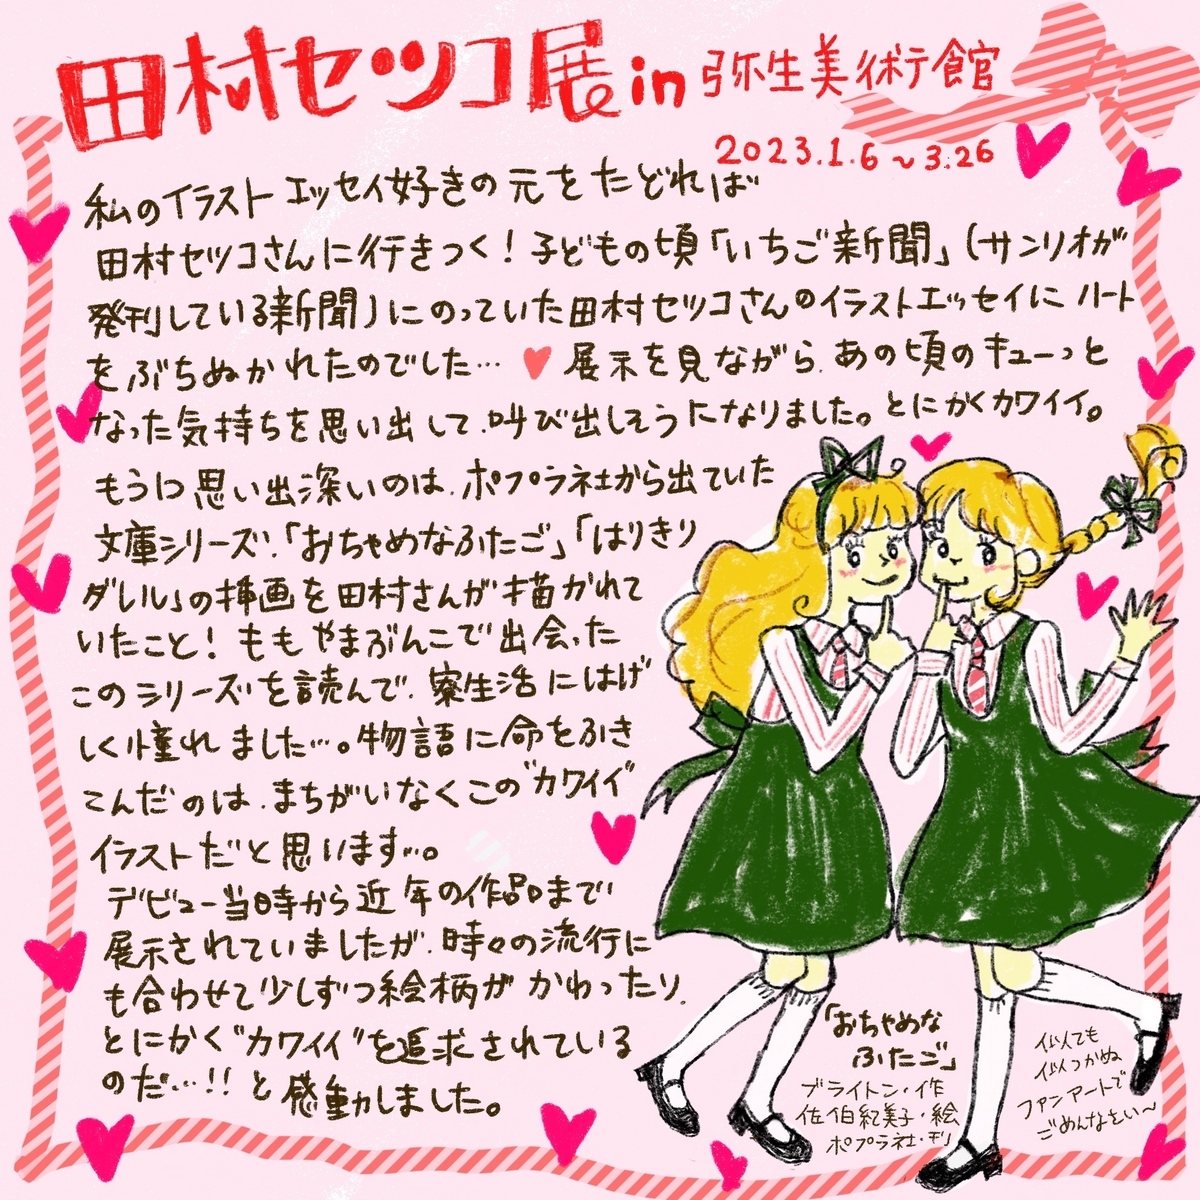 田村セツコ展 in 弥生美術館
2023.1.6～3.26
私のイラストエッセイ好きの元をたどれば
田村セツコさんに行きつく！子どもの頃「いちご新聞」(サンリオが
発刊している新聞)にのっていた田村セツコさんのイラストエッセイにハート
をぶちぬかれたのでした… 展示を見ながら、あの頃のキューっと
なった気持ちを思い出して、叫び出しそうになりました。とにかくカワイイ。
もう1つ思い出深いのは、ポプラ社から出ていた
文庫シリーズ、「おちゃめなふたご」「はりきり
ダレル」の挿画を田村さんが描かれて
いたこと！ももやまぶんこで出会った
このシリーズを読んで、寮生活にはげ
しく憧れました…。物語に命をふき
こんだのは、まちがいなくこの"カワイイ"
イラストだと思います…。
デビュー当時から近年の作品まで
展示されていましたが、時々の流行に
も合わせて少しずつ絵柄がかわったり、
とにかく"カワイイ"を追求されている
のだ…!!と感動しました。
「おちゃめな
ふたご」
ブライトン・作
佐伯紀美子・絵
ポプラ社・刊
似ても
似つかぬ
ファンアートで
ごめんなさい～